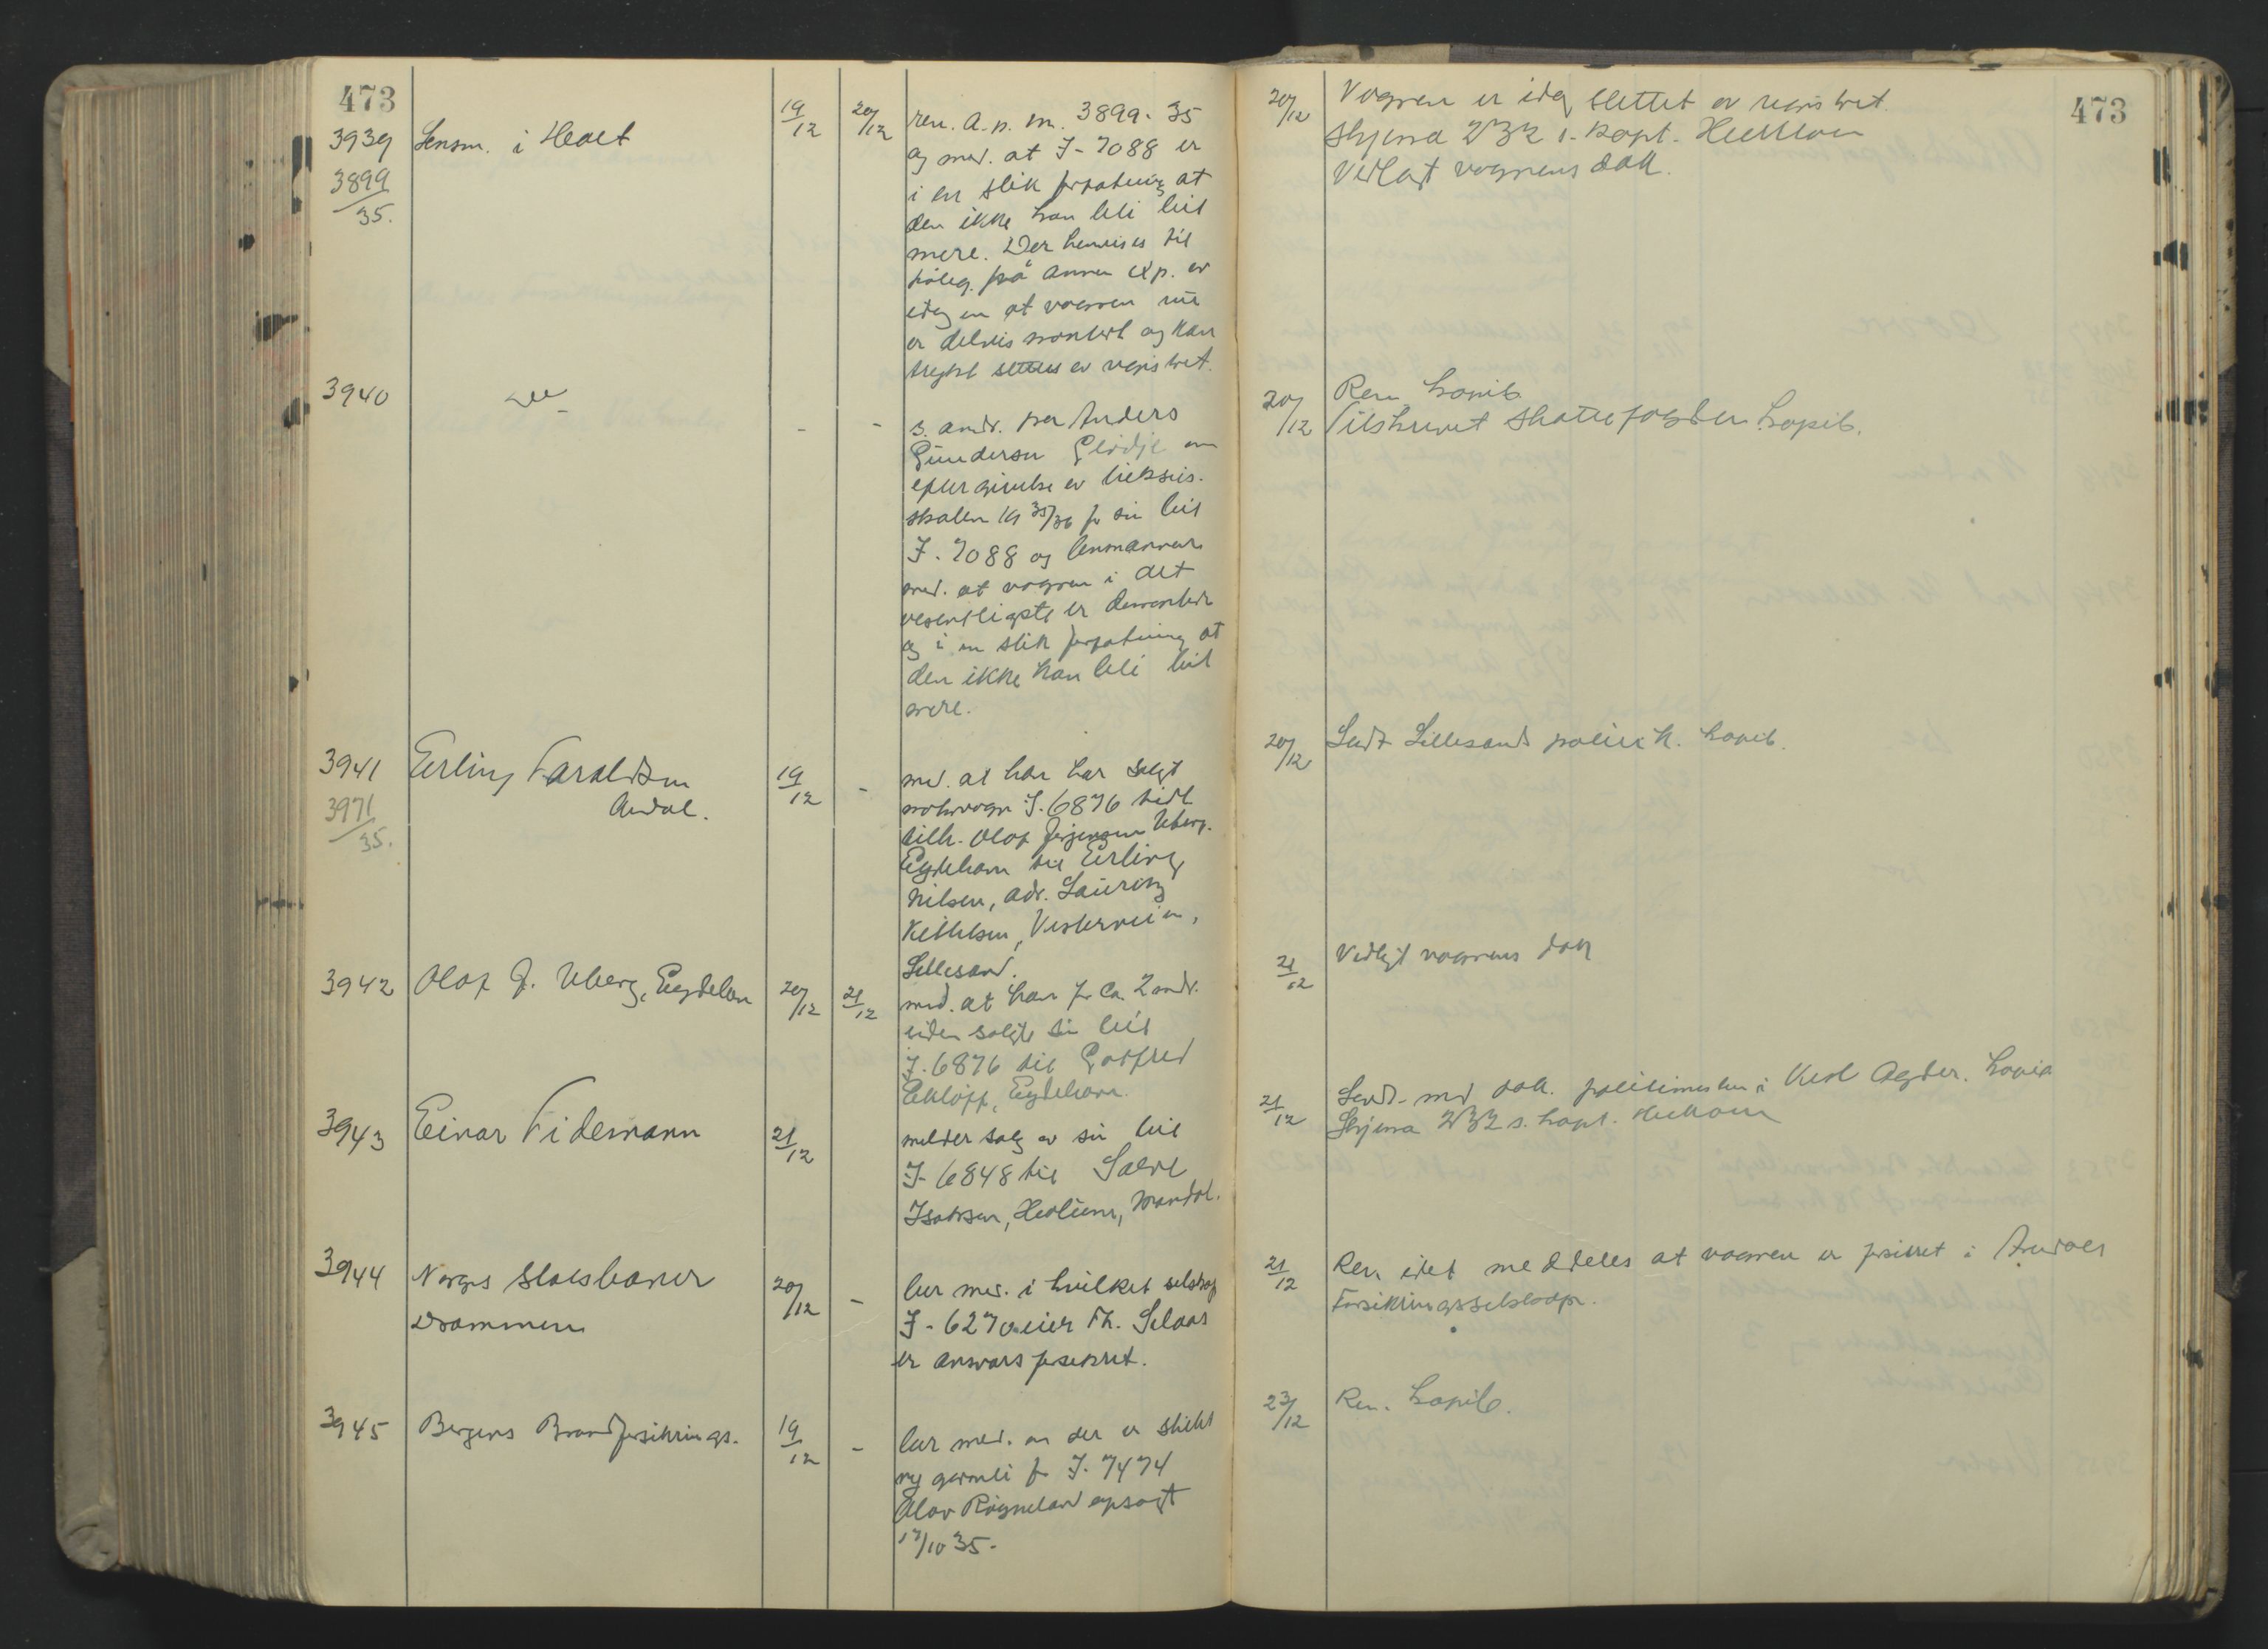 473
3939 Lensm. i Holt 19/12 20/12
3899/35.
ren. a. p. m. 3899-35
og med. at I-7088 er
i en slik forfatning at
den ikke kan bli bil
mere. Der henvises til
påteg. på annen exp. av
idag om at vognen nu
er delvis montert og kan
trygt slettes av registret.
20/12 Vognen er idag slettet av registret.
Skjema 232 s. kapt.
Vedlagt vognens dok.
3940 — - -
s. andr. fra Anders
Gundersen Glidje om
eftergivelse av luksus-
skatten 19 35/36 for sin bil
I-7088 og lensmannen
med. at vognen i det
vesentligste er demontert
og i en slik forfatning at
den ikke kan bli bil
mere.
20/12 Ren. kopib.
Tilskrevet skattefogden kopib.
3941 Erling Faraldsen 19/12 -
Arendal.
3971/35.
med. at han har solgt
motorvogn I-6876 tidl.
tilh. Olaf Jørgensen Uberg.
Eydehavn til Erling
Nilsen, adr. Lauritz
Kittelsen, Vesterveien,
Lillesand.
20/12 Sendt Lillesand politik. kopib.
3942 Olaf J. Uberg, Eydehavn 20/12 21/12
med. at han for ca. 2 mdr.
siden solgte sin bil
I-6876 til Gotfred
Ekløff, Eydehavn.
21/12 Vedlagt vognens dok
3943 Einar Fidemann 21/12
melder salg av sin bil
I-6848 til Salve
Isaksen, Mandal.
21/12 Sendt med dok. politimesteren i Vest Agder. kopib
Skjema 232 s. kapt.
3944 Norges Statsbaner 20/12 -
Drammen
ber med. i hvilket selskap
I-6270 eier Th. Selaas
er ansvarsforsikret.
21/12 Ren. idet meddeles at vognen er forsikret i Arendals
Forsikringsselskap.
3945 Bergens Brandforsikrings. 19/12 -
ber med. om der er stillet
ny garanti for I-7474
Olav Røgneland opsagt
17/10 35-
23/12 Ren. kopib.
473